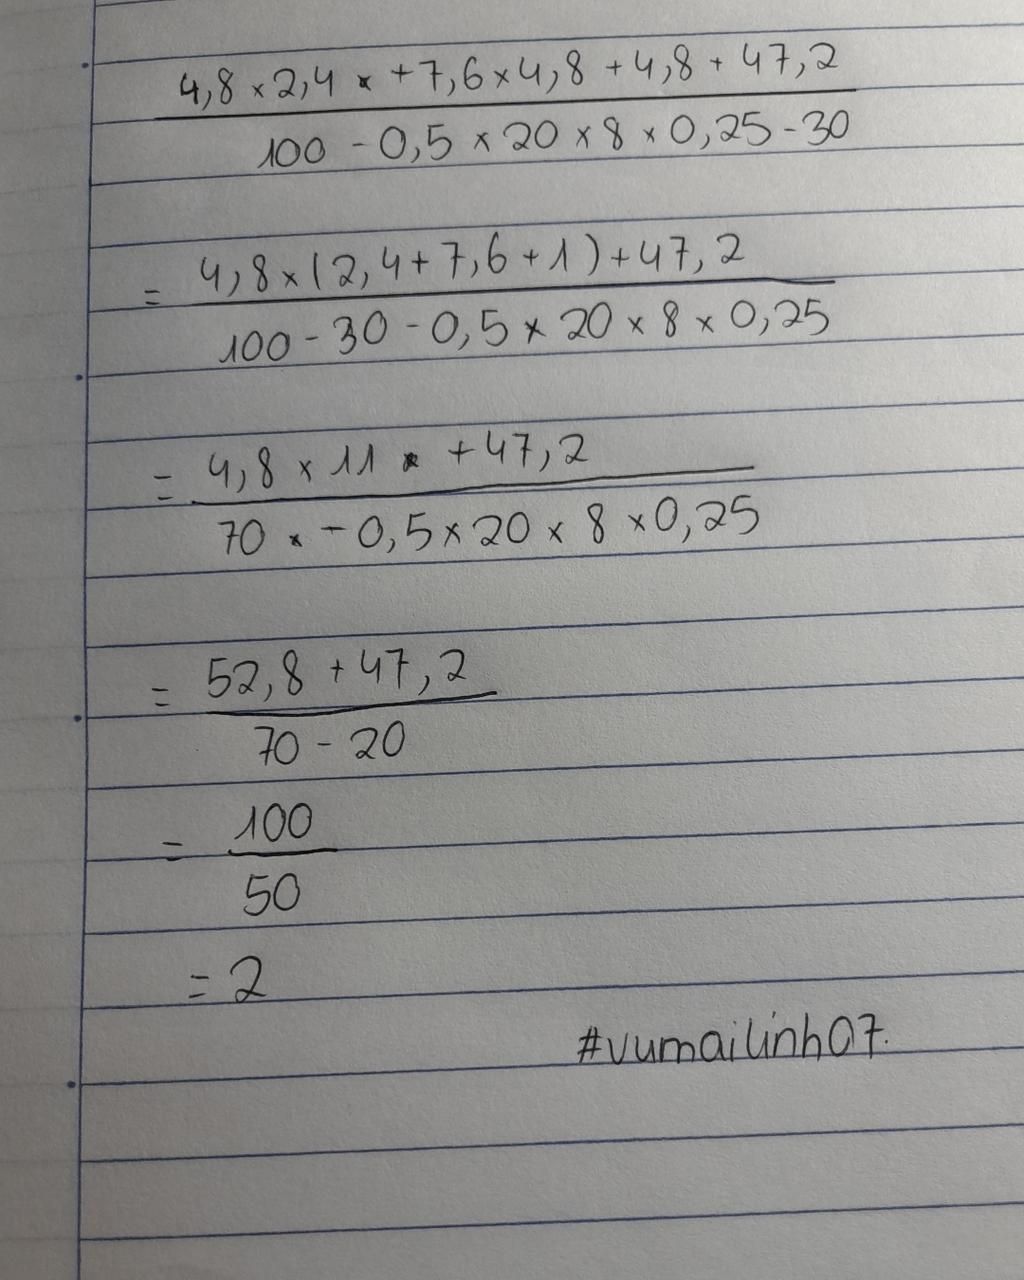 4,8 × 2,4 + 7,6 × 4,8 + 4,8 + 47,2
100 - 0,5 × 20 × 8 × 0,25 - 30
= 4,8 × (2,4 + 7,6 + 1) + 47,2
100 - 30 - 0,5 × 20 × 8 × 0,25
= 4,8 × 11 + 47,2
70 - 0,5 × 20 × 8 × 0,25
= 52,8 + 47,2
70 - 20
= 100
50
= 2
#vumailinh07.